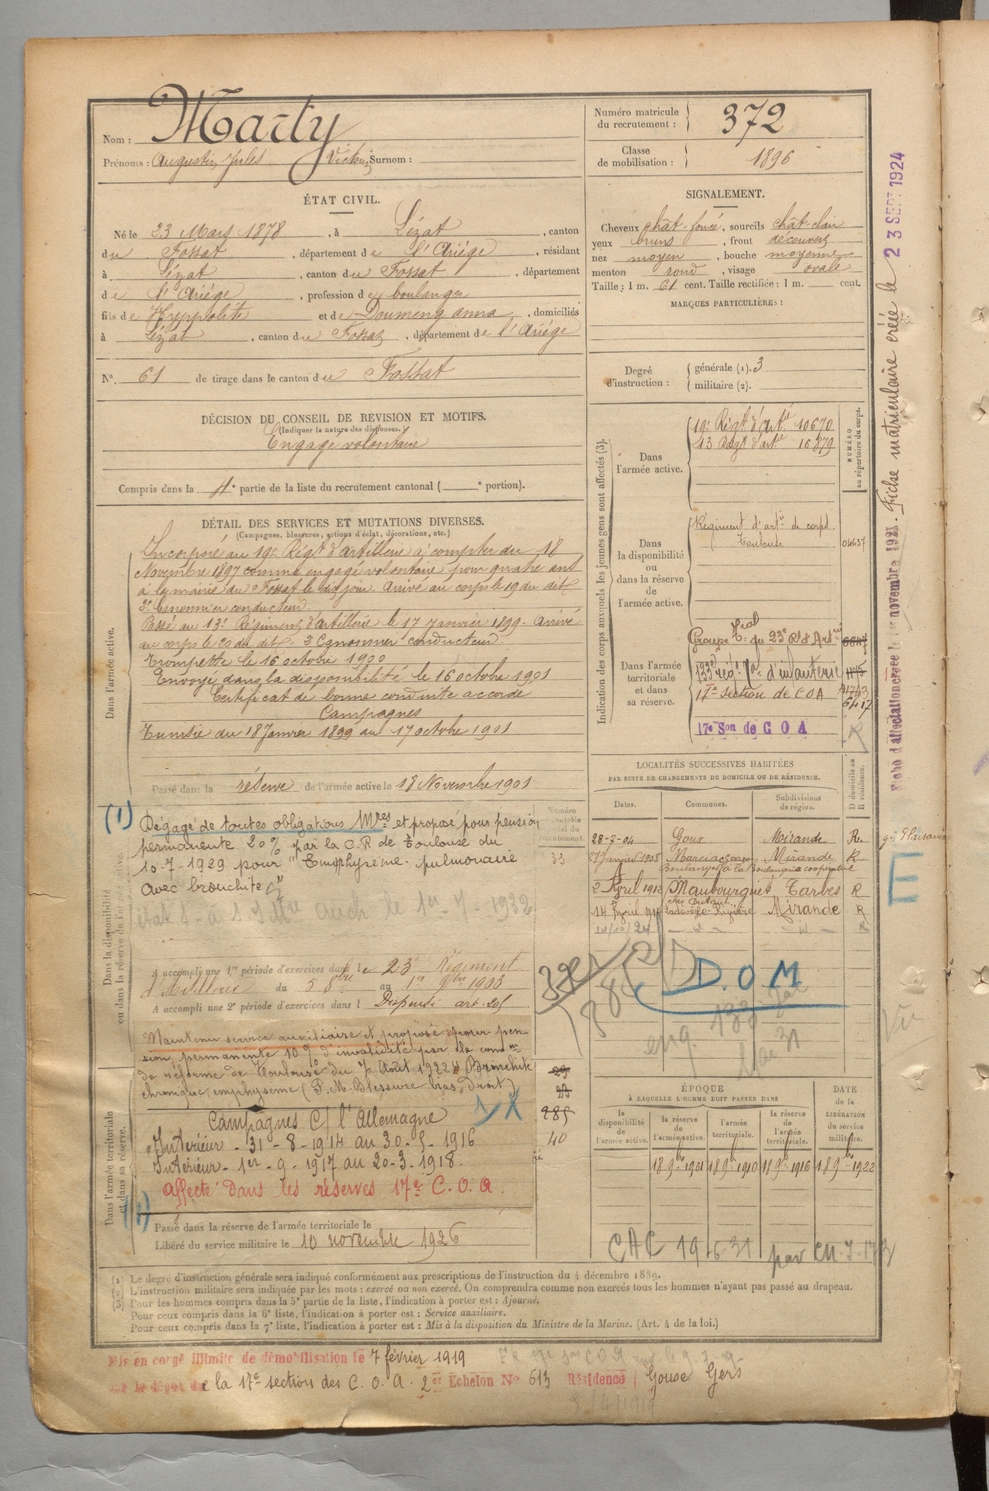 Nom : Marty
Prénoms : Augustin, Jules Victor, Surnom :
Numéro matricule du recrutement : 372
Classe de mobilisation : 1896
ÉTAT CIVIL.
Né le 23 Mars 1878, à Lézat, canton
du Fossat, département de l'Ariège, résidant
à Lézat, canton du Fossat, département
de l'Ariège, profession de boulanger
fils de Hyppolite et de Doumeng anna, domiciliés
à Lézat, canton du Fossat, département de l'Ariège
N° 61 de tirage dans le canton du Fossat
DÉCISION DU CONSEIL DE REVISION ET MOTIFS.
(Indiquer la nature des dispenses.)
Engagé volontaire
Compris dans la 4e partie de la liste du recrutement cantonal ( e portion).
SIGNALEMENT.
Cheveux chât. foncé, sourcils chât-clair
yeux bruns, front découvert
nez moyen, bouche moyenne
menton rond, visage ovale
Taille : 1 m. 61 cent. Taille rectifiée : 1 m. cent.
MARQUES PARTICULIÈRES :
Degré d'instruction : générale (1). 3
militaire (2).
Indication des corps auxquels les jeunes gens sont affectés (3).
NUMÉRO au répertoire du corps.
Dans l'armée active.
19e Régt d'Artie 10670
13 Régt d'artie 16879
Dans la disponibilité ou dans la réserve de l'armée active.
Régiment d'artie de corps
Toulouse
Dans l'armée territoriale et dans sa réserve.
Groupe Tial du 23e Rt d'Artie
133e rég. Tal d'infanterie
17e section de COA
17e Son de C O A
DÉTAIL DES SERVICES ET MUTATIONS DIVERSES.
(Campagnes, blessures, actions d'éclat, décorations, etc.)
Dans l'armée active.
Incorporé au 19e Régt d'artillerie à compter du 18
Novembre 1897 comme engagé volontaire pour quatre ans
à la mairie du Fossat le dit jour. Arrivé au corps le 19 du dit
2e Canonnier conducteur.
Passé au 13e Régiment d'artillerie le 17 janvier 1899. Arrivé
au corps le 20 du dit. 2e Canonnier conducteur
Trompette le 16 octobre 1900
Envoyé dans la disponibilité le 16 octobre 1901
Certificat de bonne conduite accordé
Campagnes
Tunisie du 18 Janvier 1899 au 17 octobre 1901
Passé dans la réserve de l'armée active le 18 Novembre 1901
Dans la disponibilité ou dans la réserve de l'armée active.
(1) Dégagé de toutes obligations Mres et proposé pour pension
permanente 20% par la C.R de Toulouse du
10-7-1929 pour "Emphysème pulmonaire
avec bronchite"
A accompli une 1re période d'exercices dans le 23e Régiment
d'Artillerie du 5 8bre au 1er 9bre 1903
A accompli une 2e période d'exercices dans l
Maintenu service auxiliaire et proposé pour pen-
sion permanente 10% d'invalidité par la comon
de réforme de Toulouse du 7 Août 1922 Bronchite
chronique, emphysème (P.M. Blessure bras droit)
Campagnes C/ l'Allemagne
Intérieur - 31-8-1914 au 30-5-1916
Intérieur - 1er-9-1917 au 20-3-1918.
affecté dans les réserves 17e C.O.A.
Dans l'armée territoriale et dans sa réserve.
Passé dans la réserve de l'armée territoriale le
Libéré du service militaire le 10 novembre 1926
33
285
40
LOCALITÉS SUCCESSIVES HABITÉES
PAR SUITE DE CHANGEMENTS DE DOMICILE OU DE RÉSIDENCE.
Dates. Communes. Subdivisions de région. D domicile ou R résidence.
28-2-04 Goux Mirande R.
Janvier 1908 Marciac Mirande R
Boulanger à la Boulangerie coopérative
2 April 1912 Maubourguet Tarbes R
Ladevèze-Rivière Mirande R
D.O.M
E
ÉPOQUE
À LAQUELLE L'HOMME DOIT PASSER DANS
la disponibilité de l'armée active. la réserve de l'armée active. l'armée territoriale. la réserve de l'armée territoriale.
DATE de la LIBÉRATION du service militaire.
18 9bre 1901 18 9bre 1910 18 9bre 1916 18 9bre 1922
CAC 19-6-31
(1) Le degré d'instruction générale sera indiqué conformément aux prescriptions de l'instruction du 4 décembre 1889.
(2) L'instruction militaire sera indiquée par les mots : exercé ou non exercé. On comprendra comme non exercés tous les hommes n'ayant pas passé au drapeau.
(3) Pour les hommes compris dans la 5e partie de la liste, l'indication à porter est : Ajourné.
Pour ceux compris dans la 6e liste, l'indication à porter est : Service auxiliaire.
Pour ceux compris dans la 7e liste, l'indication à porter est : Mis à la disposition du Ministre de la Marine. (Art. 4 de la loi.)
Mis en congé illimité de démobilisation le 7 février 1919
par le dépôt de la 17e section des C.O.A. 2e Echelon No 613 Résidence Gouse Gers
Fiche matriculaire créée le 23 SEPT 1924